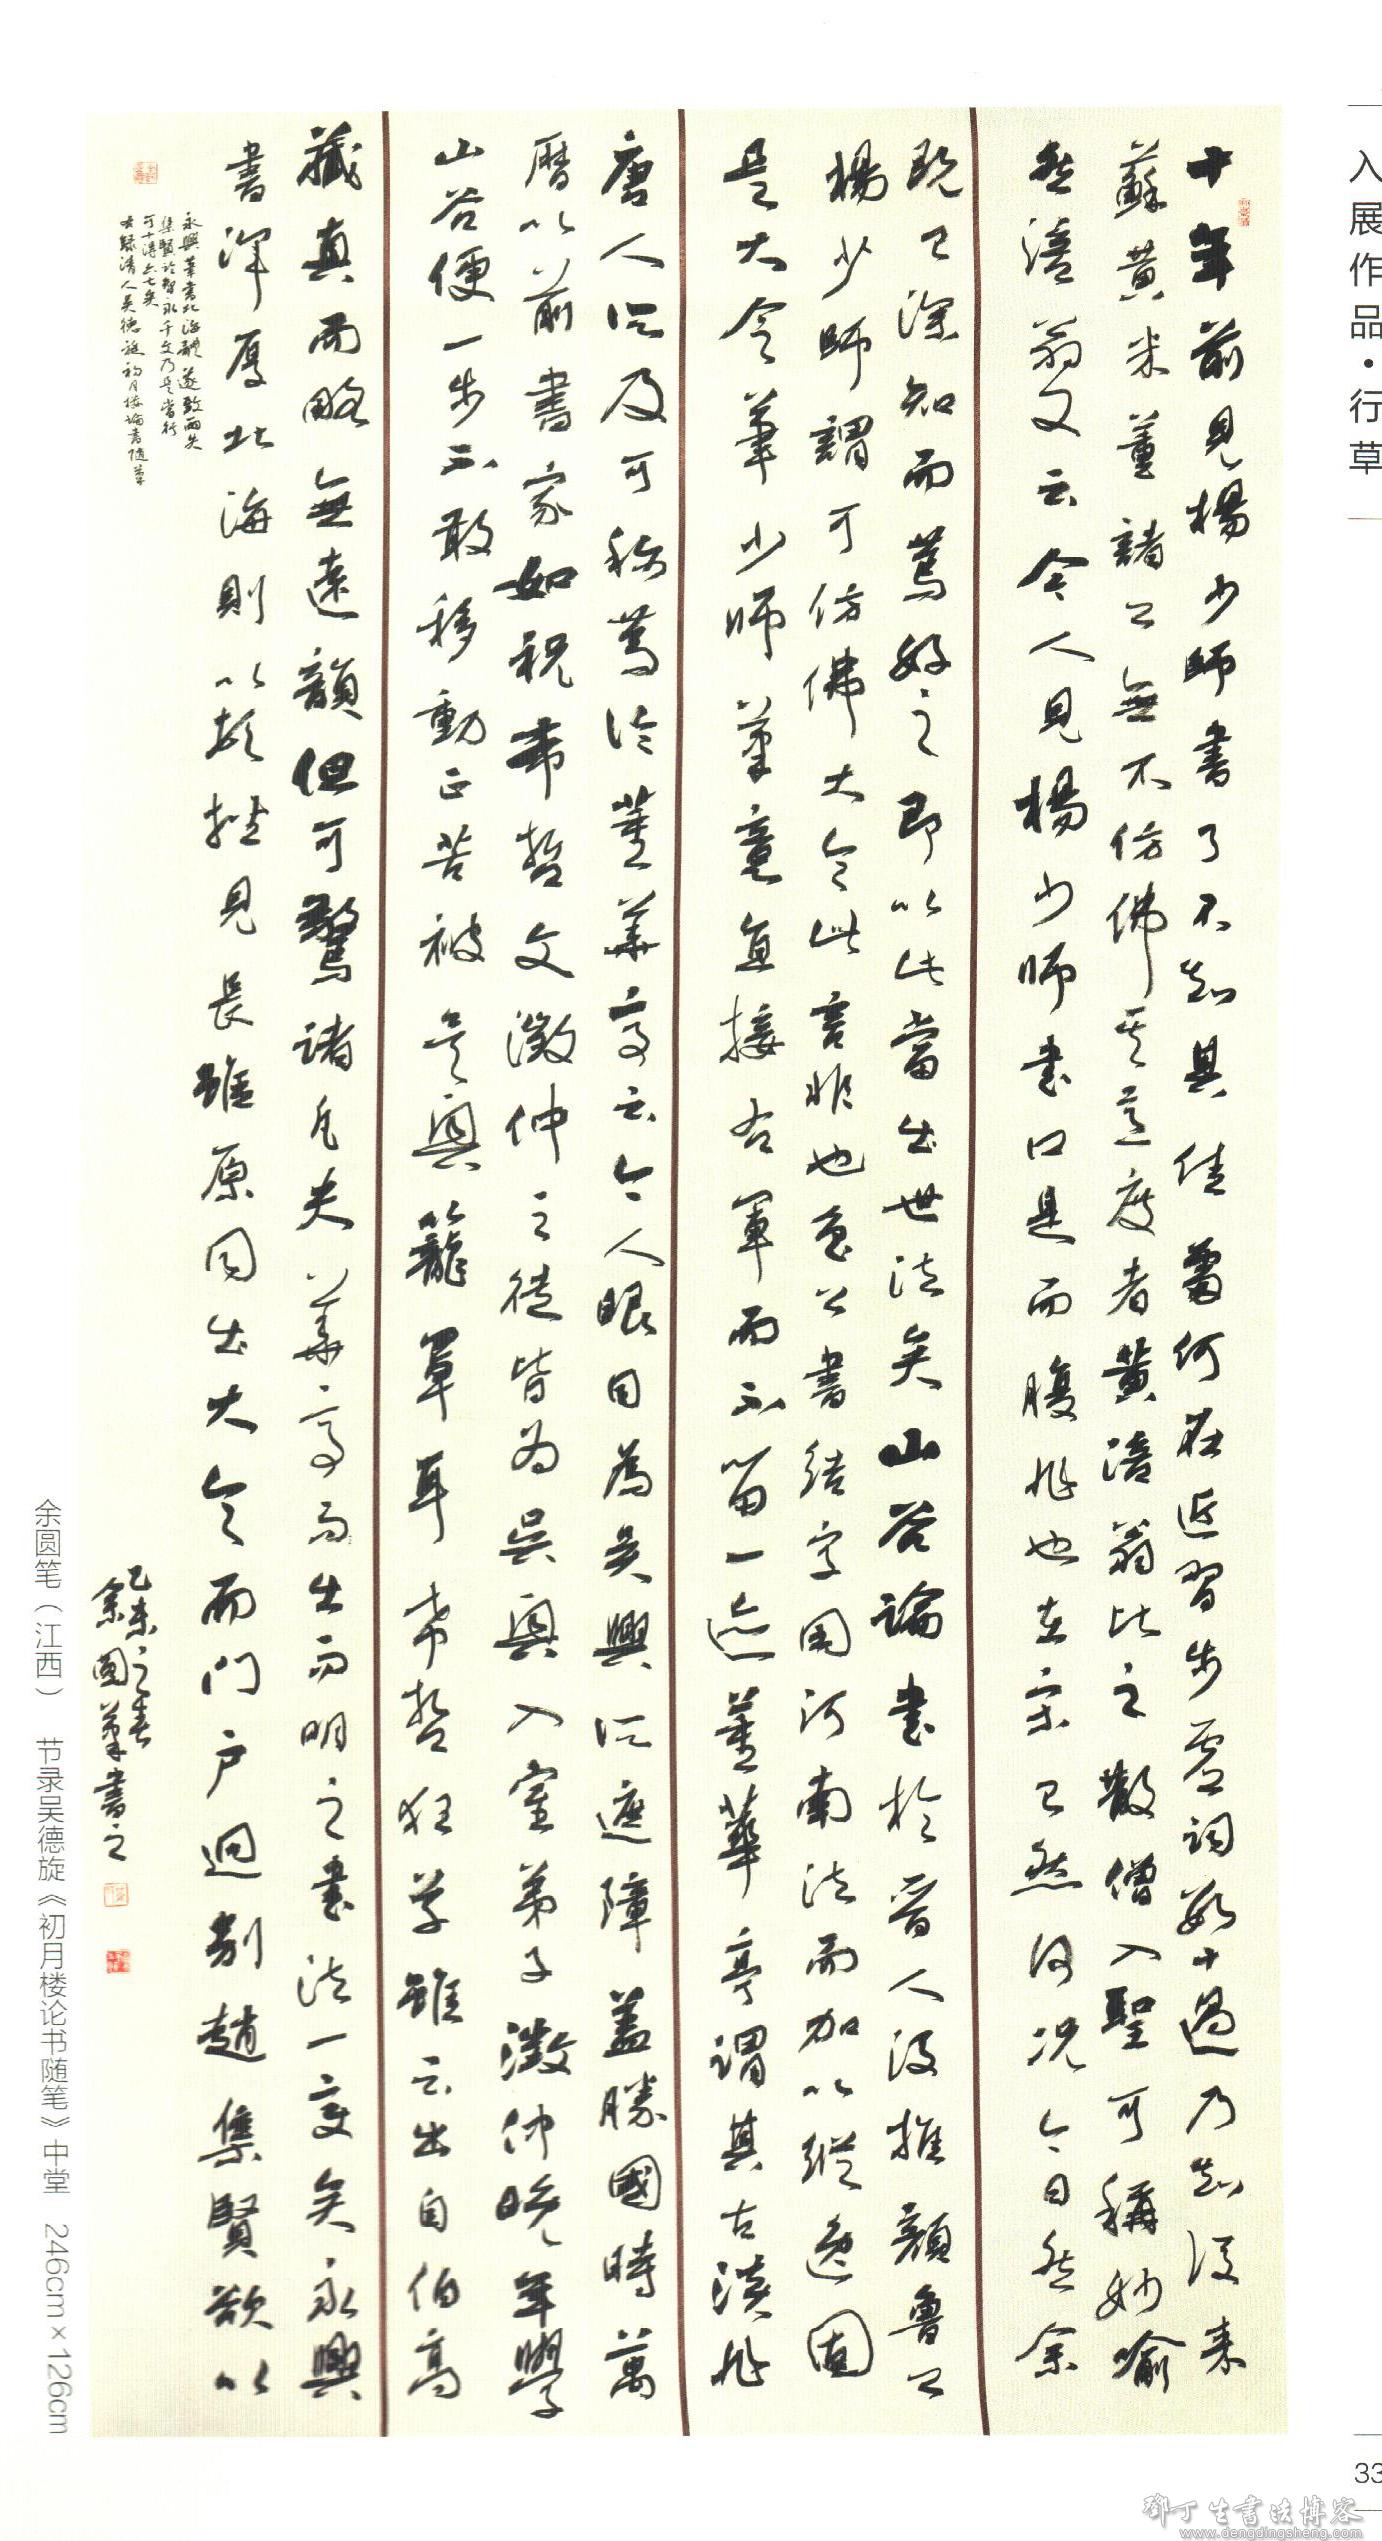 入展作品·行草
十年前見楊少師書了不知其佳處何在近習步虛詞数十過乃知後来
蘇黃米董諸公無不仿佛其意度者黃涪翁比之散僧入聖可稱妙喻
然涪翁又云今人見楊少師書口是而腹非也在宋已然何況今日然余
既已深知而篤好之即以此當出世法矣山谷論書於晉人後推顏魯公
楊少師謂可仿佛大令此言非也魯公書結字用河南法而加以縱逸固
是大令筆少師筆意直接右軍而不留一迹董華亭謂其古淡非
唐人所及可称篤論董華亭云今人眼目為吳興所遮障蓋勝國時萬
曆以前書家如祝希哲文徵仲之徒皆為吳興入室弟子徵仲晚年學
山谷便一步不敢移動正苦被吳興籠罩耳希哲狂草雖云出自伯高
藏真而略無遠韻但可驚諸凡夫華亭而出而明之書法一變矣永興
書渾厚北海則以頓挫見長雖原同出大令而門戶迥別趙集賢欲以
永興筆書北海體遂致兩失
集賢於智永千文乃是當行
可十得六七矣
右録清人吳德旋初月樓論書随筆
乙未之春
余圓筆書之
余圆笔（江西） 节录吴德旋《初月楼论书随笔》中堂 246cm×126cm
33
鄧丁生書法博客
www.dengdingsheng.com